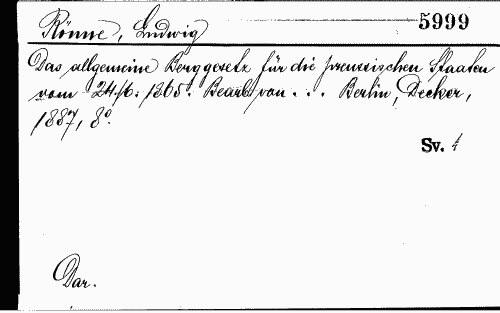 Rönne, Ludwig 5999
Das allgemeine Berggesetz für die preussischen Staaten
vom 24./6. 1865. Bearb. von . . . Berlin, Decker,
1887, 8°.
Sv. 1
Dar.